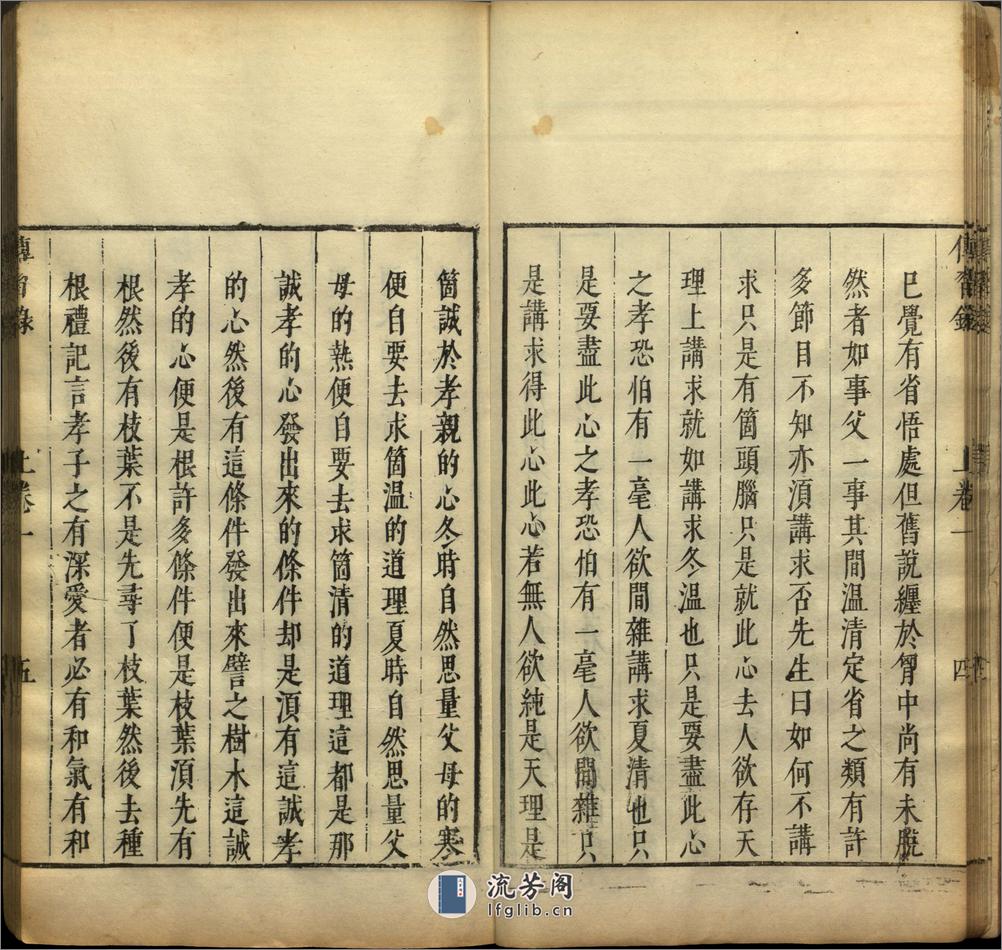 傳習錄 上卷一 四
已覺有省悟處但舊說纏於胷中尚有未脫
然者如事父一事其間温凊定省之類有許
多節目不知亦湏講求否先生曰如何不講
求只是有箇頭腦只是就此心去人欲存天
理上講求就如講求冬温也只是要盡此心
之孝恐怕有一毫人欲間雜講求夏凊也只
是要盡此心之孝恐怕有一毫人欲間雜只
是講求得此心此心若無人欲純是天理是
箇誠於孝親的心冬時自然思量父母的寒
便自要去求箇温的道理夏時自然思量父
母的熱便自要去求箇清的道理這都是那
誠孝的心發出來的條件却是湏有這誠孝
的心然後有這條件發出來譬之樹木這誠
孝的心便是根許多條件便是枝葉湏先有
根然後有枝葉不是先尋了枝葉然後去種
根禮記言孝子之有深愛者必有和氣有和
傳習錄 上卷一 五
流芳阁
lfglib.cn